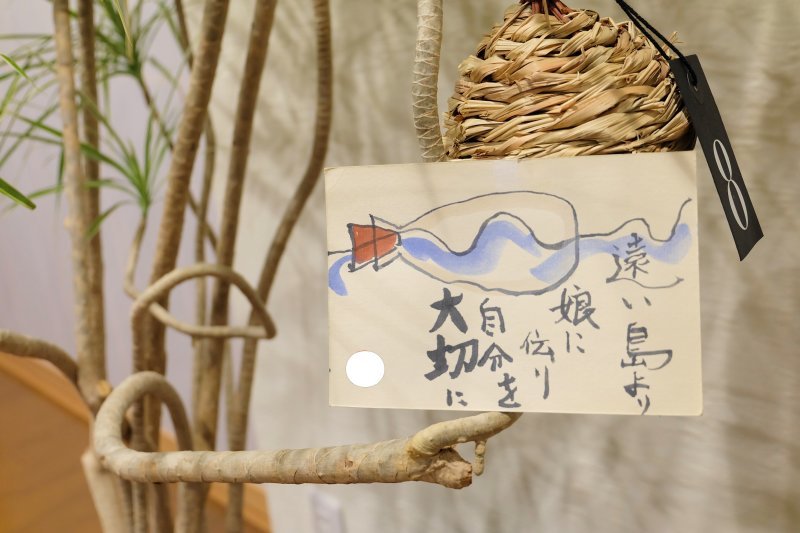 遠い島より
娘に
伝り
自分を
大切に
8